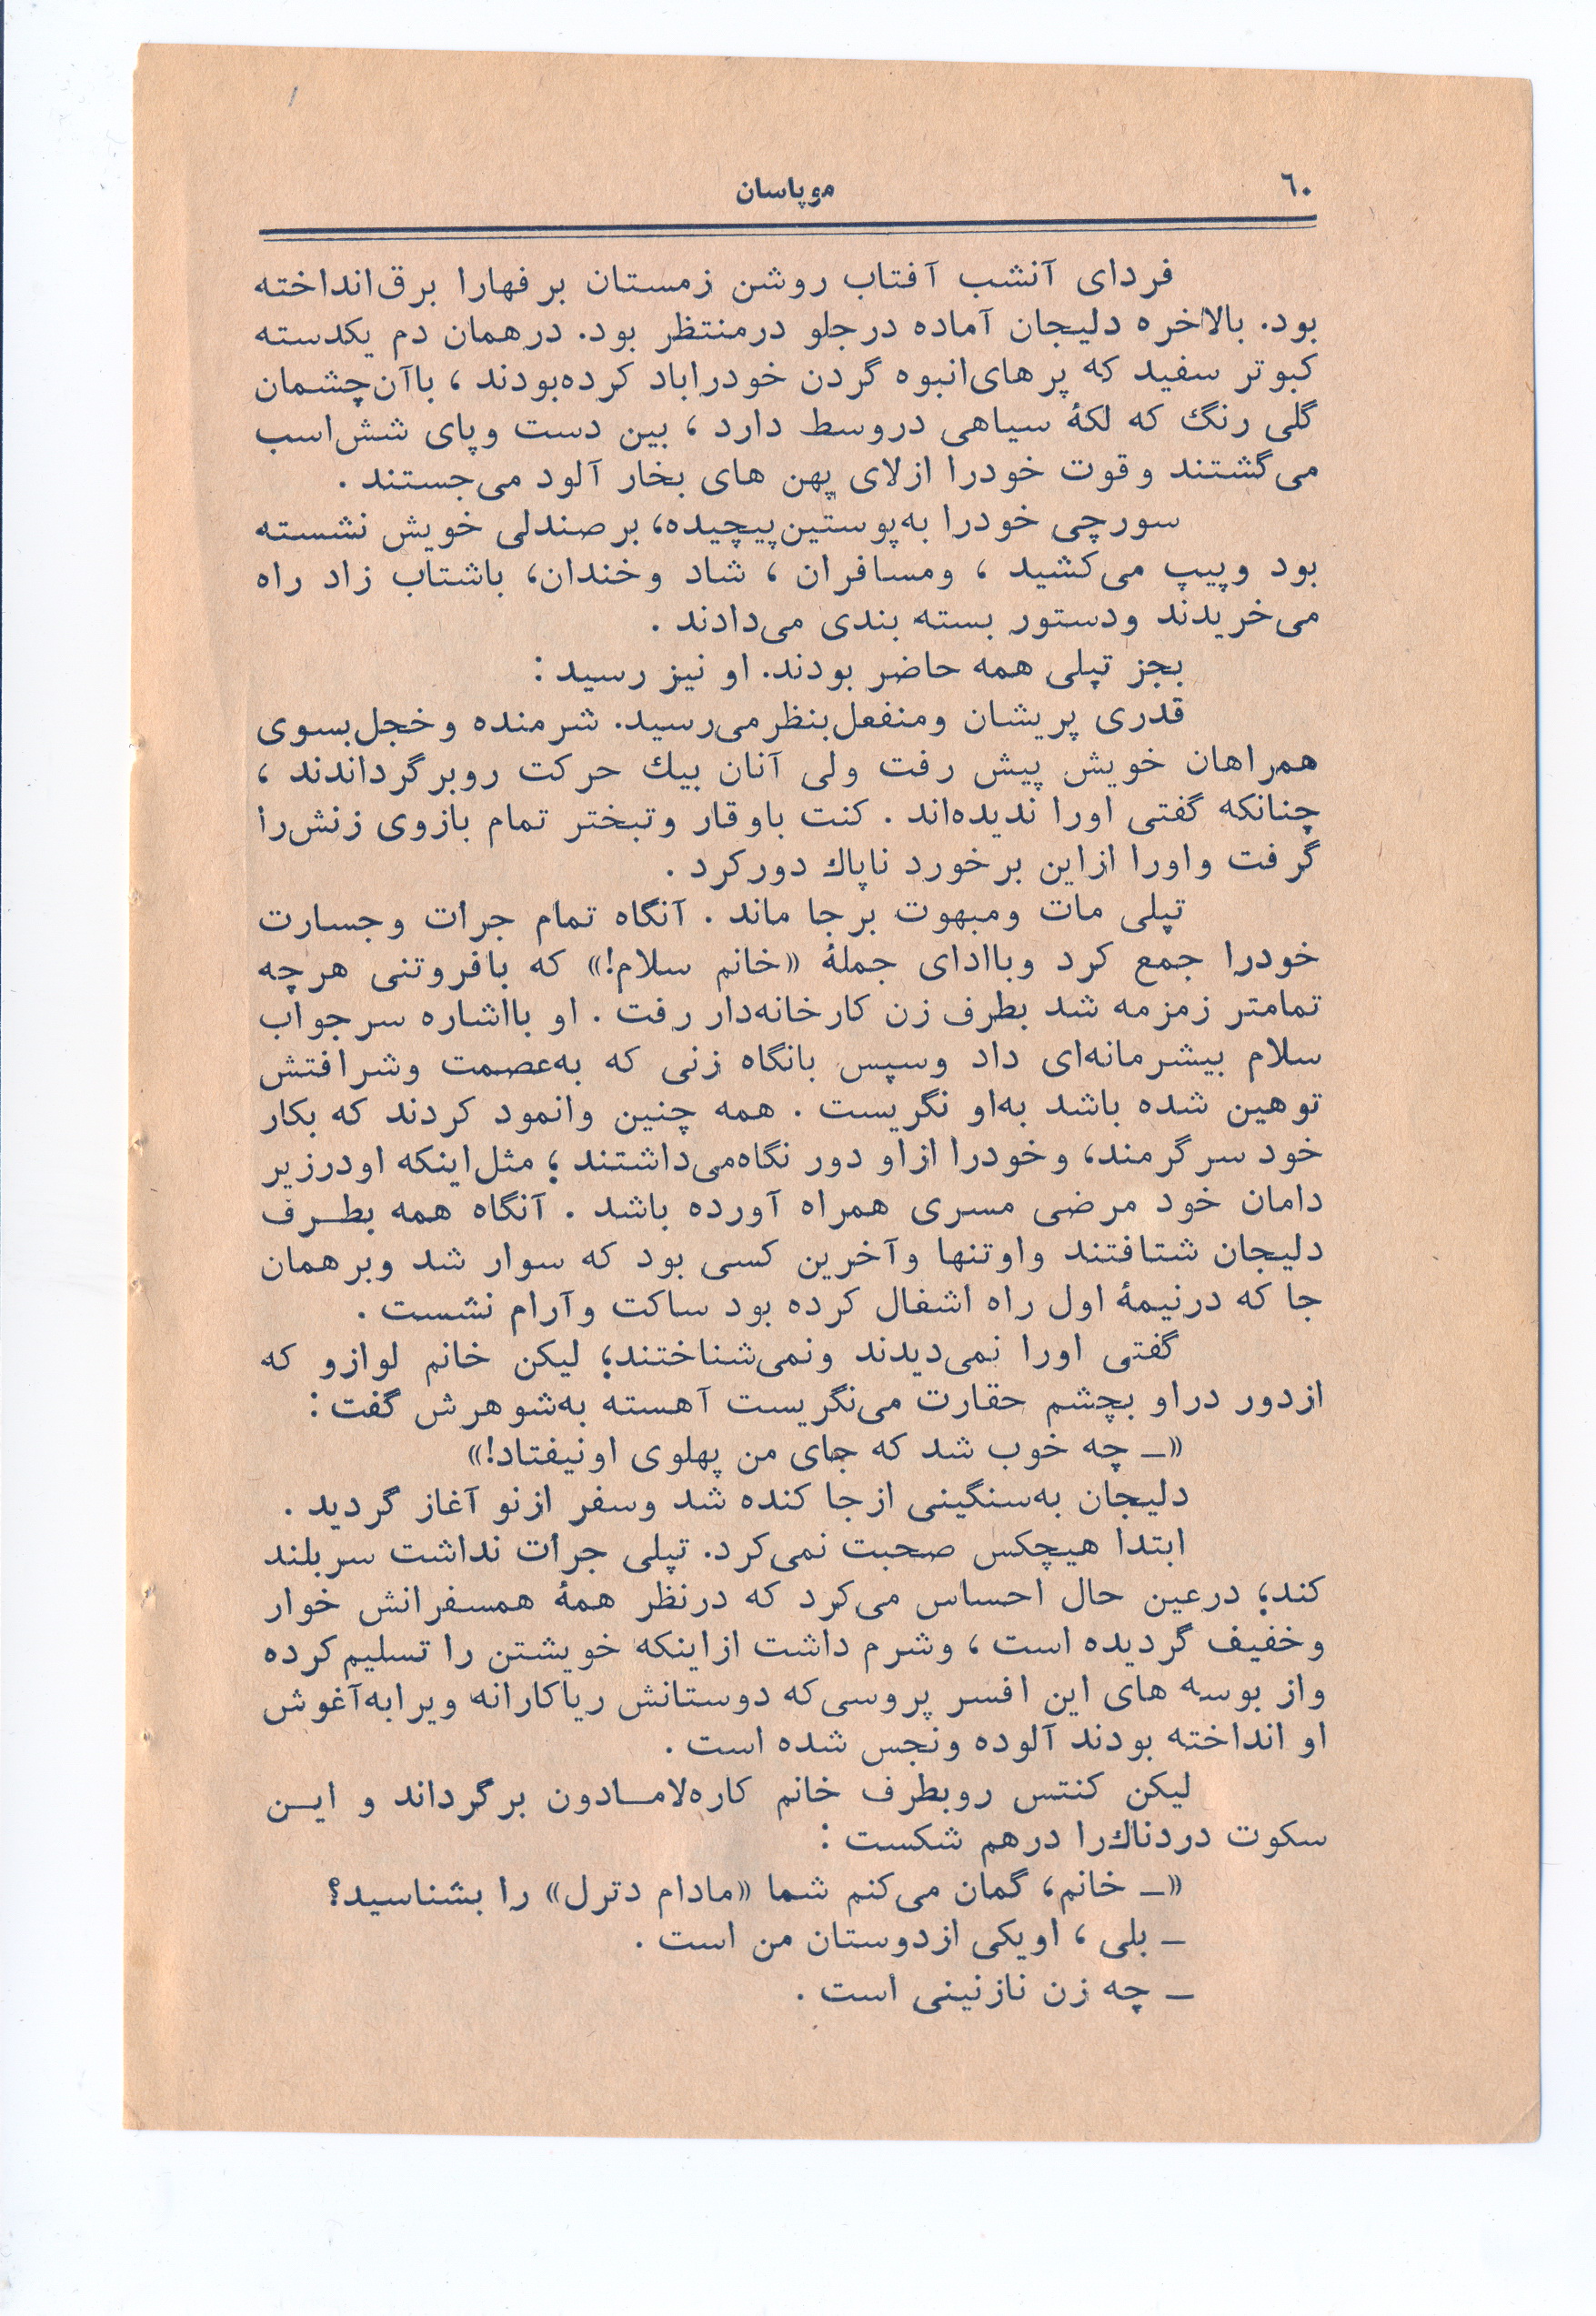 ۶۰
موپاسان
فردای آنشب آفتاب روشن زمستان برفهارا برق‌انداخته
بود. بالاخره دلیجان آماده درجلو درمنتظر بود. درهمان دم یکدسته
کبوتر سفید که پرهای‌انبوه گردن خودراباد کرده‌بودند ، باآن‌چشمان
گلی رنگ که لکهٔ سیاهی دروسط دارد ، بین دست وپای شش‌اسب
می‌گشتند وقوت خودرا ازلای پهن های بخار آلود می‌جستند .
سورچی خودرا به‌پوستین‌پیچیده، برصندلی خویش نشسته
بود وپیپ می‌کشید ، ومسافران ، شاد وخندان، باشتاب زاد راه
می‌خریدند ودستور بسته بندی می‌دادند .
بجز تپلی همه حاضر بودند. او نیز رسید :
قدری پریشان ومنفعل‌بنظرمی‌رسید. شرمنده وخجل‌بسوی
همراهان خویش پیش رفت ولی آنان بیك حرکت روبرگرداندند ،
چنانکه گفتی اورا ندیده‌اند . کنت باوقار وتبختر تمام بازوی زنش‌را
گرفت واورا ازاین برخورد ناپاك دورکرد .
تپلی مات ومبهوت برجا ماند . آنگاه تمام جرات وجسارت
خودرا جمع کرد وباادای جملهٔ «خانم سلام!» که بافروتنی هرچه
تمامتر زمزمه شد بطرف زن کارخانه‌دار رفت . او بااشاره سرجواب
سلام بیشرمانه‌ای داد وسپس بانگاه زنی که به‌عصمت وشرافتش
توهین شده باشد به‌او نگریست . همه چنین وانمود کردند که بکار
خود سرگرمند، وخودرا ازاو دور نگاه‌می‌داشتند ؛ مثل‌اینکه اودرزیر
دامان خود مرضی مسری همراه آورده باشد . آنگاه همه بطرف
دلیجان شتافتند واوتنها وآخرین کسی بود که سوار شد وبرهمان
جا که درنیمهٔ اول راه اشغال کرده بود ساکت وآرام نشست .
گفتی اورا نمی‌دیدند ونمی‌شناختند؛ لیکن خانم لوازو که
ازدور دراو بچشم حقارت می‌نگریست آهسته به‌شوهرش گفت :
«ـ چه خوب شد که جای من پهلوی اونیفتاد!»
دلیجان به‌سنگینی ازجا کنده شد وسفر ازنو آغاز گردید .
ابتدا هیچکس صحبت نمی‌کرد. تپلی جرأت نداشت سربلند
کند؛ درعین حال احساس می‌کرد که درنظر همهٔ همسفرانش خوار
وخفیف گردیده است ، وشرم داشت ازاینکه خویشتن را تسلیم‌کرده
واز بوسه های این افسر پروسی‌که دوستانش ریاکارانه ویرابه‌آغوش
او انداخته بودند آلوده ونجس شده است .
لیکن کنتس روبطرف خانم کاره‌لامادون برگرداند و این
سکوت دردناك‌را درهم شکست :
«ـ خانم، گمان می‌کنم شما «مادام دترل» را بشناسید؟
ـ بلی ، اویکی ازدوستان من است .
ـ چه زن نازنینی است .